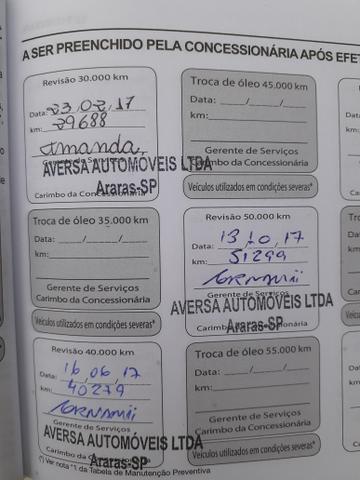 A SER PREENCHIDO PELA CONCESSIONÁRIA APÓS EFET
Revisão 30.000 km
Data: 23,02,17
km: 29688
Amanda
Gerente de Serviços
AVERSA AUTOMÓVEIS LTDA
Araras-SP
Carimbo da Concessionária
Troca de óleo 45.000 km
Data: ____/____/____
km:
Gerente de Serviços
Carimbo da Concessionária
Veículos utilizados em condições severas*
Troca de óleo 35.000 km
Data: ____/____/____
km:
Gerente de Serviços
Carimbo da Concessionária
Veículos utilizados em condições severas*
Revisão 50.000 km
Data: 13,10,17
km: 51299
Gerente de Serviços
AVERSA AUTOMÓVEIS LTDA
Araras-SP
Carimbo da Concessionária
Revisão 40.000 km
Data: 16,06,17
km: 40279
Gerente de Serviços
AVERSA AUTOMÓVEIS LTDA
Araras-SP
Troca de óleo 55.000 km
Data: ____/____/____
km:
Gerente de Serviços
Carimbo da Concessionária
Veículos utilizados em condições severas*
(*) Ver nota *1 da Tabela de Manutenção Preventiva